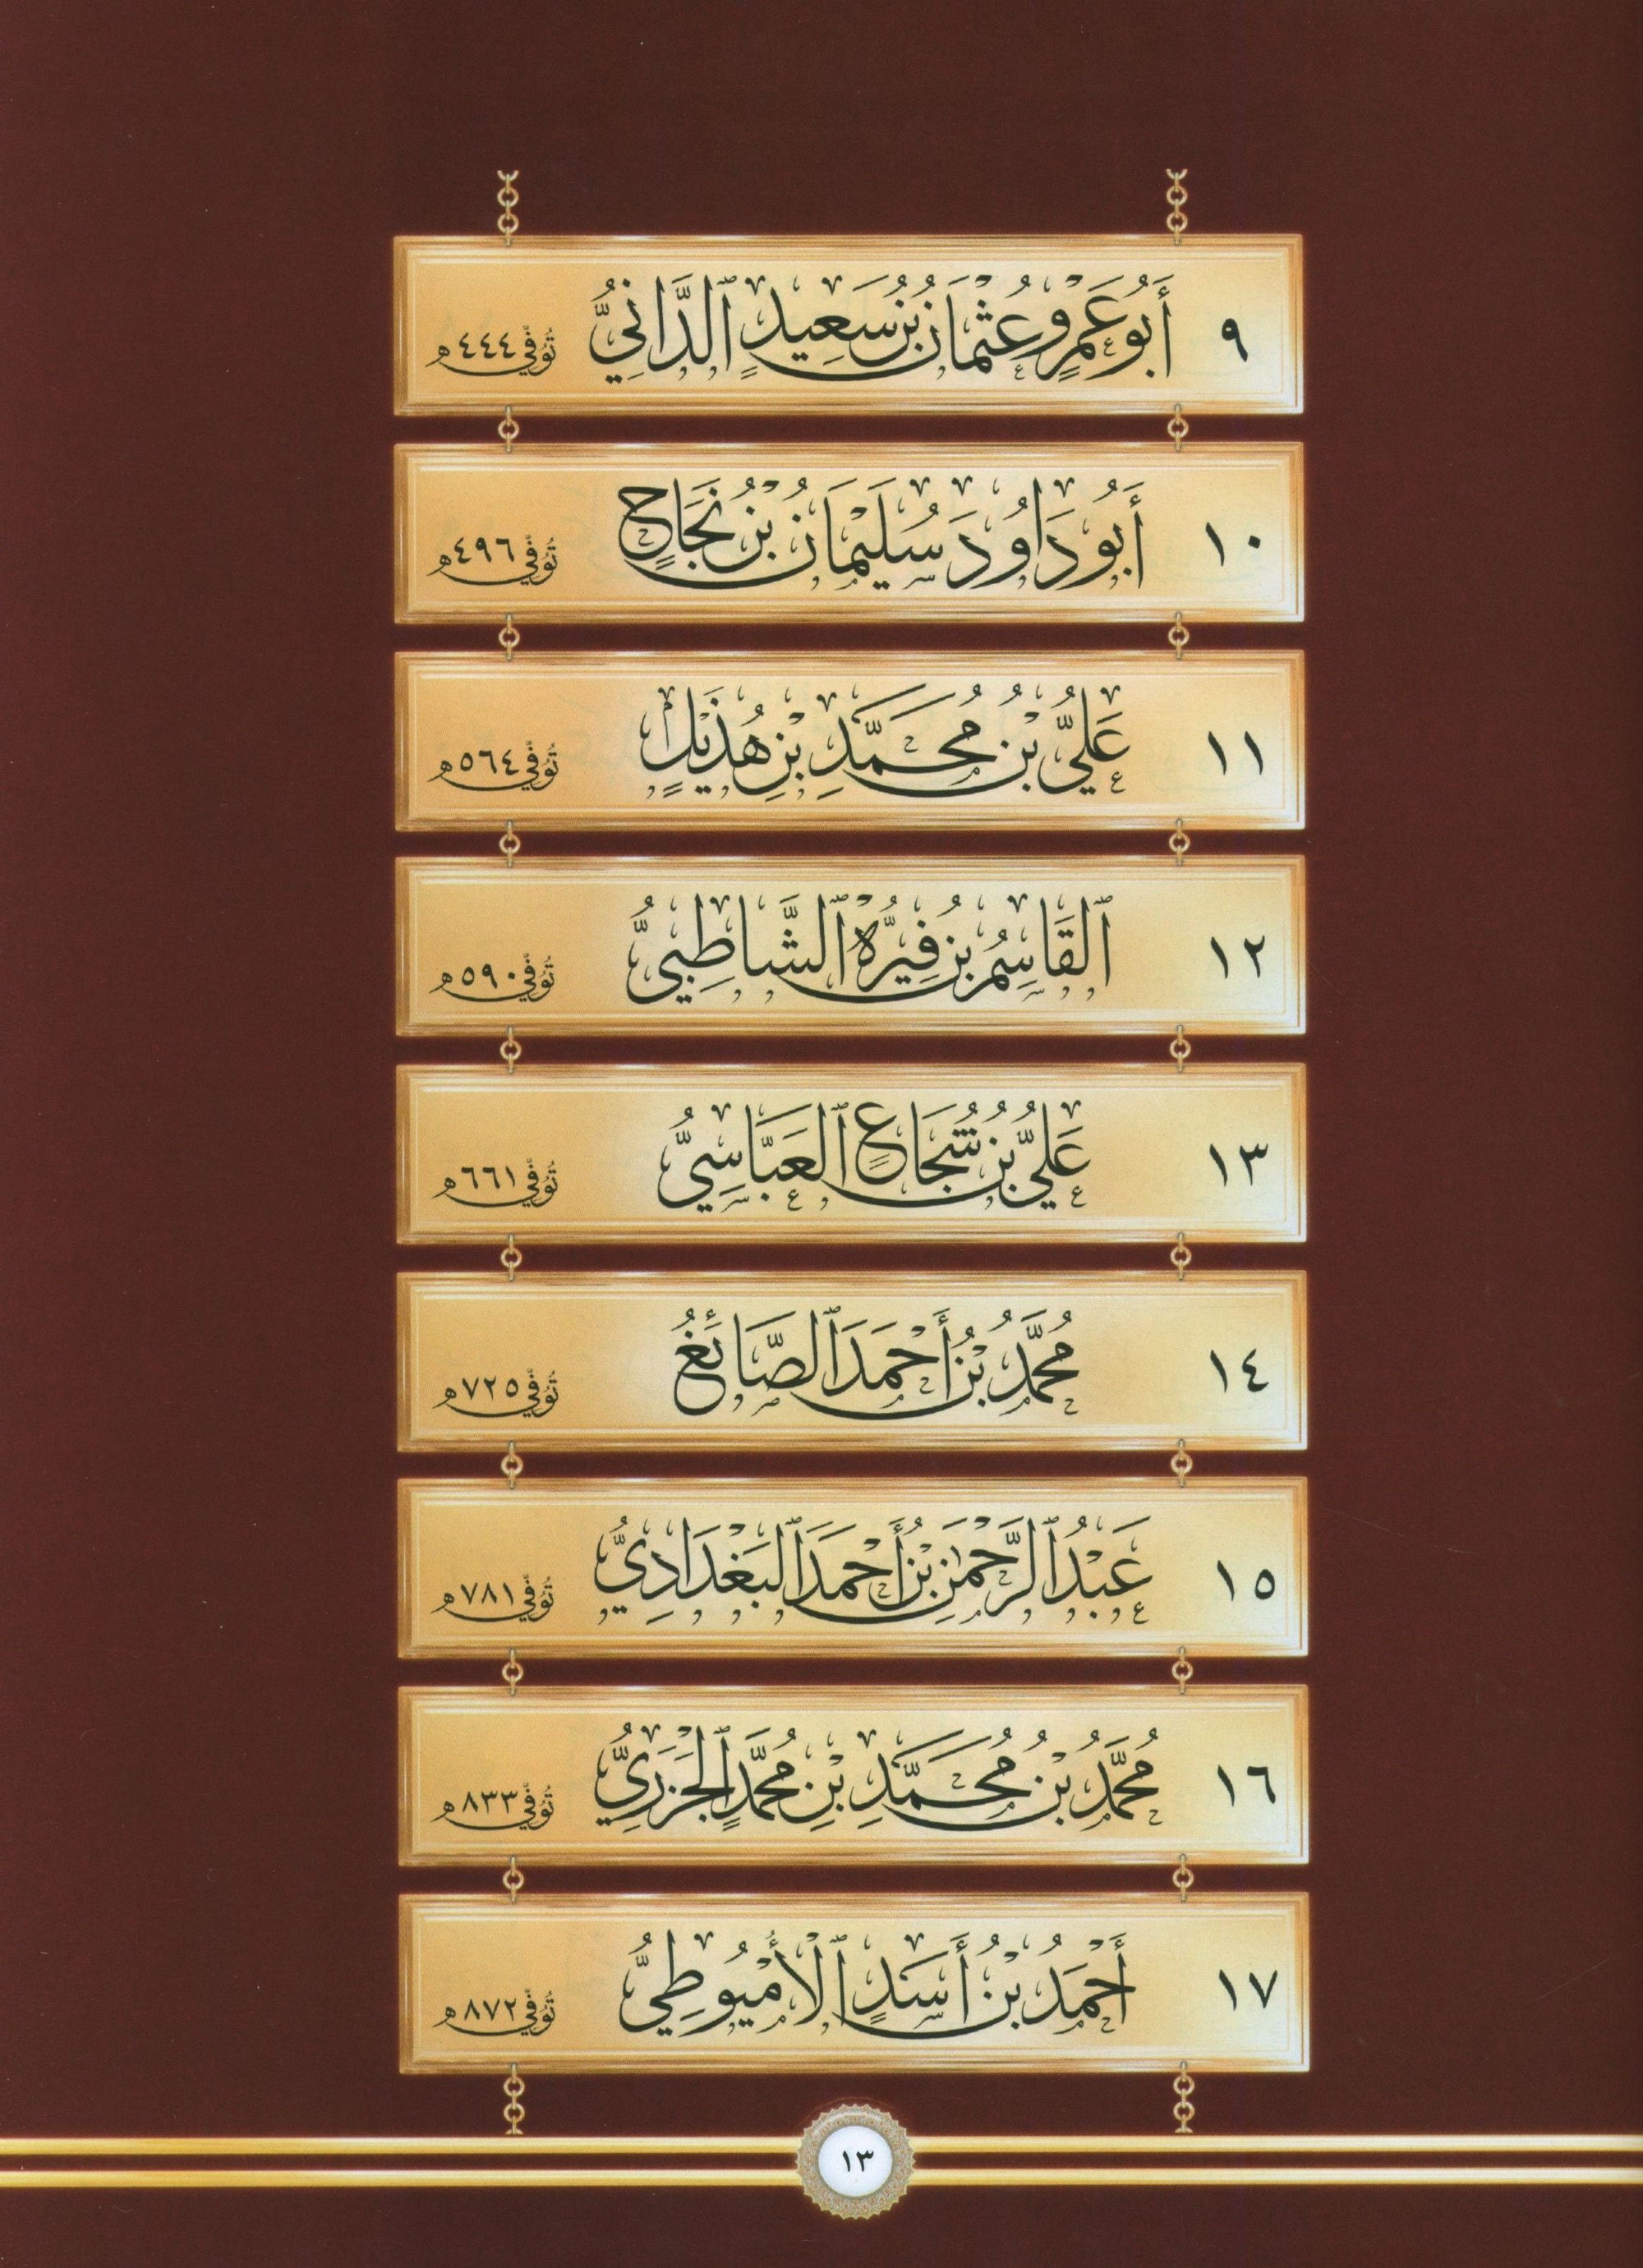 ٩ أَبُو عَمْرٍو عُثْمَانُ بْنُ سَعِيدٍ ٱلدَّانِيُّ تُوُفِّيَ ٤٤٤ هـ
١٠ أَبُو دَاوُدَ سُلَيْمَانُ بْنُ نَجَاحٍ تُوُفِّيَ ٤٩٦ هـ
١١ عَلِيُّ بْنُ مُحَمَّدِ بْنِ هُذَيْلٍ تُوُفِّيَ ٥٦٤ هـ
١٢ ٱلْقَاسِمُ بْنُ فِيرُّهْ ٱلشَّاطِبِيُّ تُوُفِّيَ ٥٩٠ هـ
١٣ عَلِيُّ بْنُ شُجَاعٍ ٱلْعَبَّاسِيُّ تُوُفِّيَ ٦٦١ هـ
١٤ مُحَمَّدُ بْنُ أَحْمَدَ ٱلصَّائِغُ تُوُفِّيَ ٧٢٥ هـ
١٥ عَبْدُ ٱلرَّحْمَٰنِ بْنُ أَحْمَدَ ٱلْبَغْدَادِيُّ تُوُفِّيَ ٧٨١ هـ
١٦ مُحَمَّدُ بْنُ مُحَمَّدِ بْنِ مُحَمَّدٍ ٱلْجَزَرِيُّ تُوُفِّيَ ٨٣٣ هـ
١٧ أَحْمَدُ بْنُ أَسَدٍ ٱلْأُمْيُوطِيُّ تُوُفِّيَ ٨٧٢ هـ
١٣